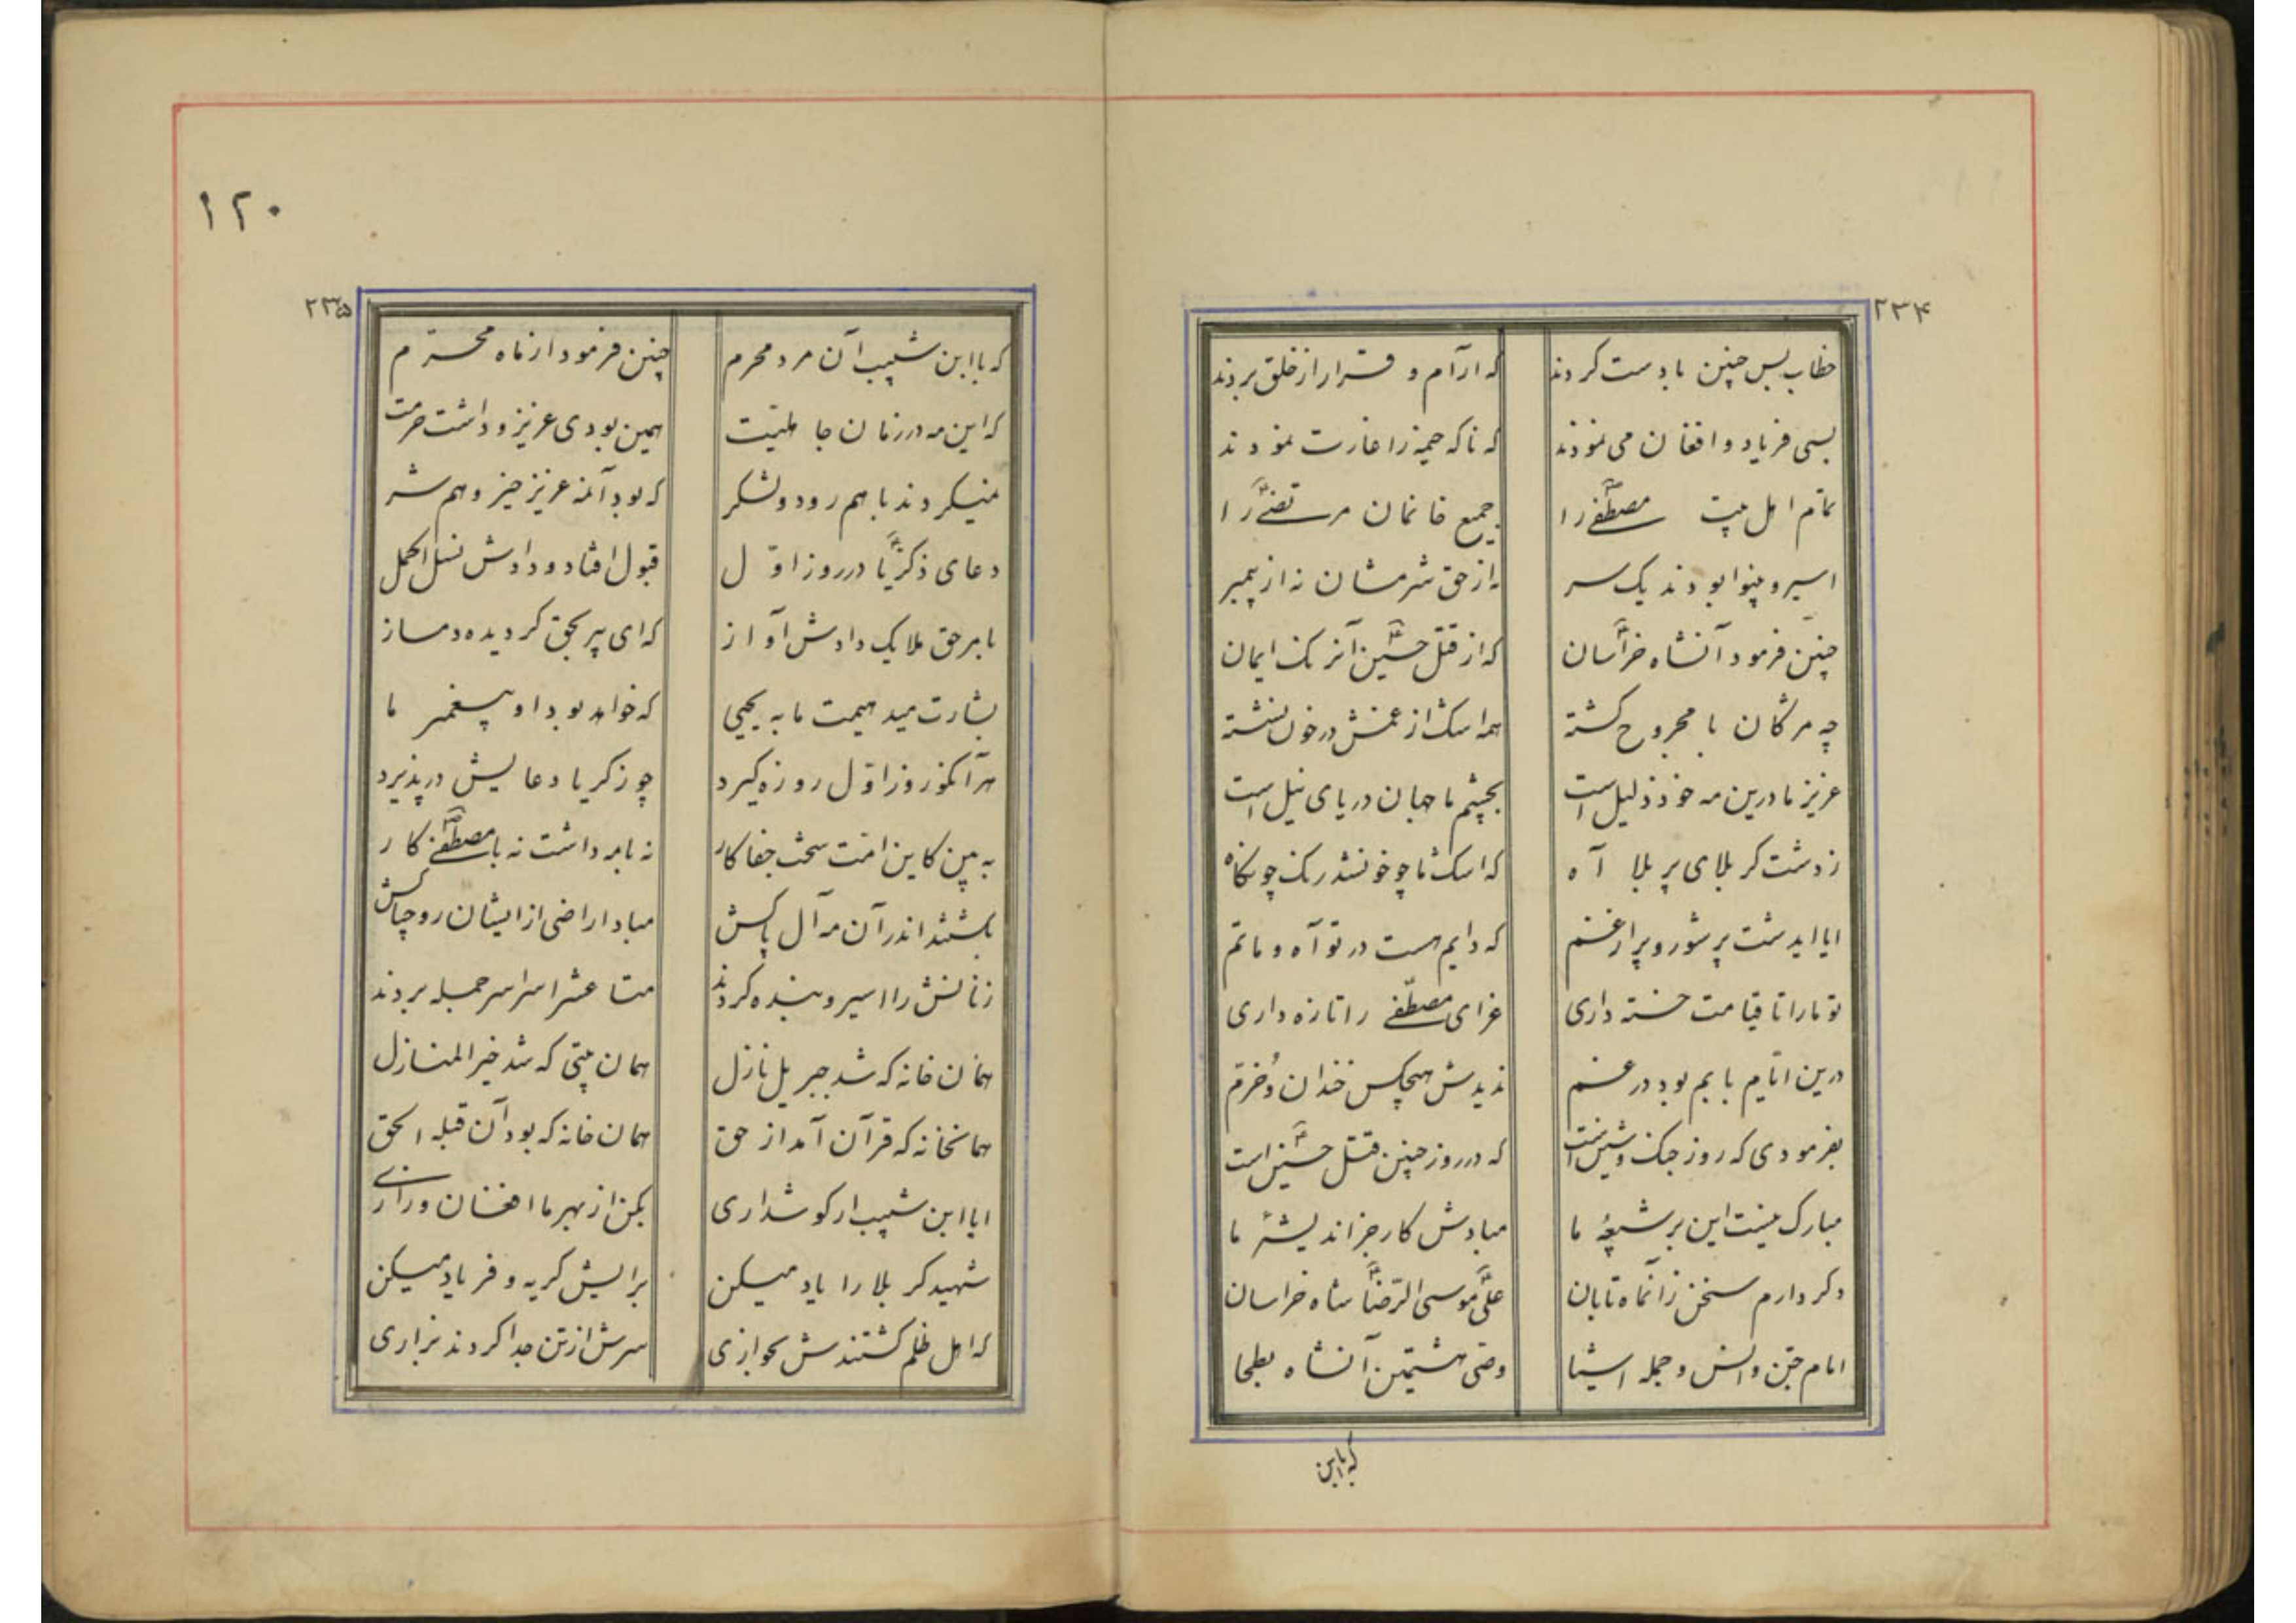 ۲۳۴
خطاب بس چنین با دست کردند که آرام و قرار از خلق بردند
بسی فریاد و افغان می نمودند که ناکه خیمه را غارت نمودند
تمام اهل بیت مصطفی را جمیع خانمان مرتضی را
اسیر و بینوا بودند یک سر نه از حق شرمشان نه از پیمبر
چنین فرمود آنشاه خراسان که از قتل حسین آنرکن ایمان
چه مژکان با مجروح کشته همه اشک از غمش در خون نشسته
عزیز ما درین مه خود ذلیل است بچشم ما جهان دریای نیل است
ز دشت کربلای پر بلا آه که اشک ما چو خونشد رنک چو کاه
ایا ایدشت پر شور و پر از غم که دایم هست در تو آه و ماتم
تو ما را تا قیامت خسته داری عزای مصطفی را تازه داری
درین ایام بابم بود در غم ندیدش هیچکس خندان و خرم
بفرمودی که روز جنک و شین است که در روز چنین قتل حسین است
مبارک نیست این بر شیعهٔ ما مبادش کار جز اندیشهٔ ما
دکر دارم سخن زانماه تابان علی موسی الرضا شاه خراسان
امام جن و انس و جمله اشیا وصی هشتمین آنشاه بطحا
که با ابن
۱۲۰
۲۳۵
که با ابن شبیب آن مرد محرم چنین فرمود از ماه محترم
که این مه در زمان جاهلیت همین بودی عزیز و داشت حرمت
نمیکردند با هم رود و لشکر که بود آنمه عزیز خیز و هم شر
دعای ذکریا در روز اول قبول افتاد و دادش نسل اکمل
بامر حق ملایک دادش آواز که ای پیر بحق کردیده دمساز
بشارت میدهیمت ما به یحیی که خواهد بود او پیغمبر ما
هر آنکو روز اول روزه کیرد چو زکریا دعایش در پذیرد
به بین کاین امت سخت جفا کار نه با مه داشت نه با مصطفی کار
بکشتند اندر آن مه آل پاکش مبادا راضی از ایشان روح پاکش
زنانش را اسیر و بنده کردند متاعش را سراسر جمله بردند
همان خانه که شد جبریل نازل همان بیتی که شد خیر المنازل
همانخانه که قرآن آمد از حق همان خانه که بود آن قبله الحق
ایا ابن شبیب ار کوشداری بکن از بهر ما افغان و زاری
شهید کربلا را یاد میکن برایش کریه و فریاد میکن
که اهل ظلم کشتندش بخواری سرش از تن جدا کردند بزاری